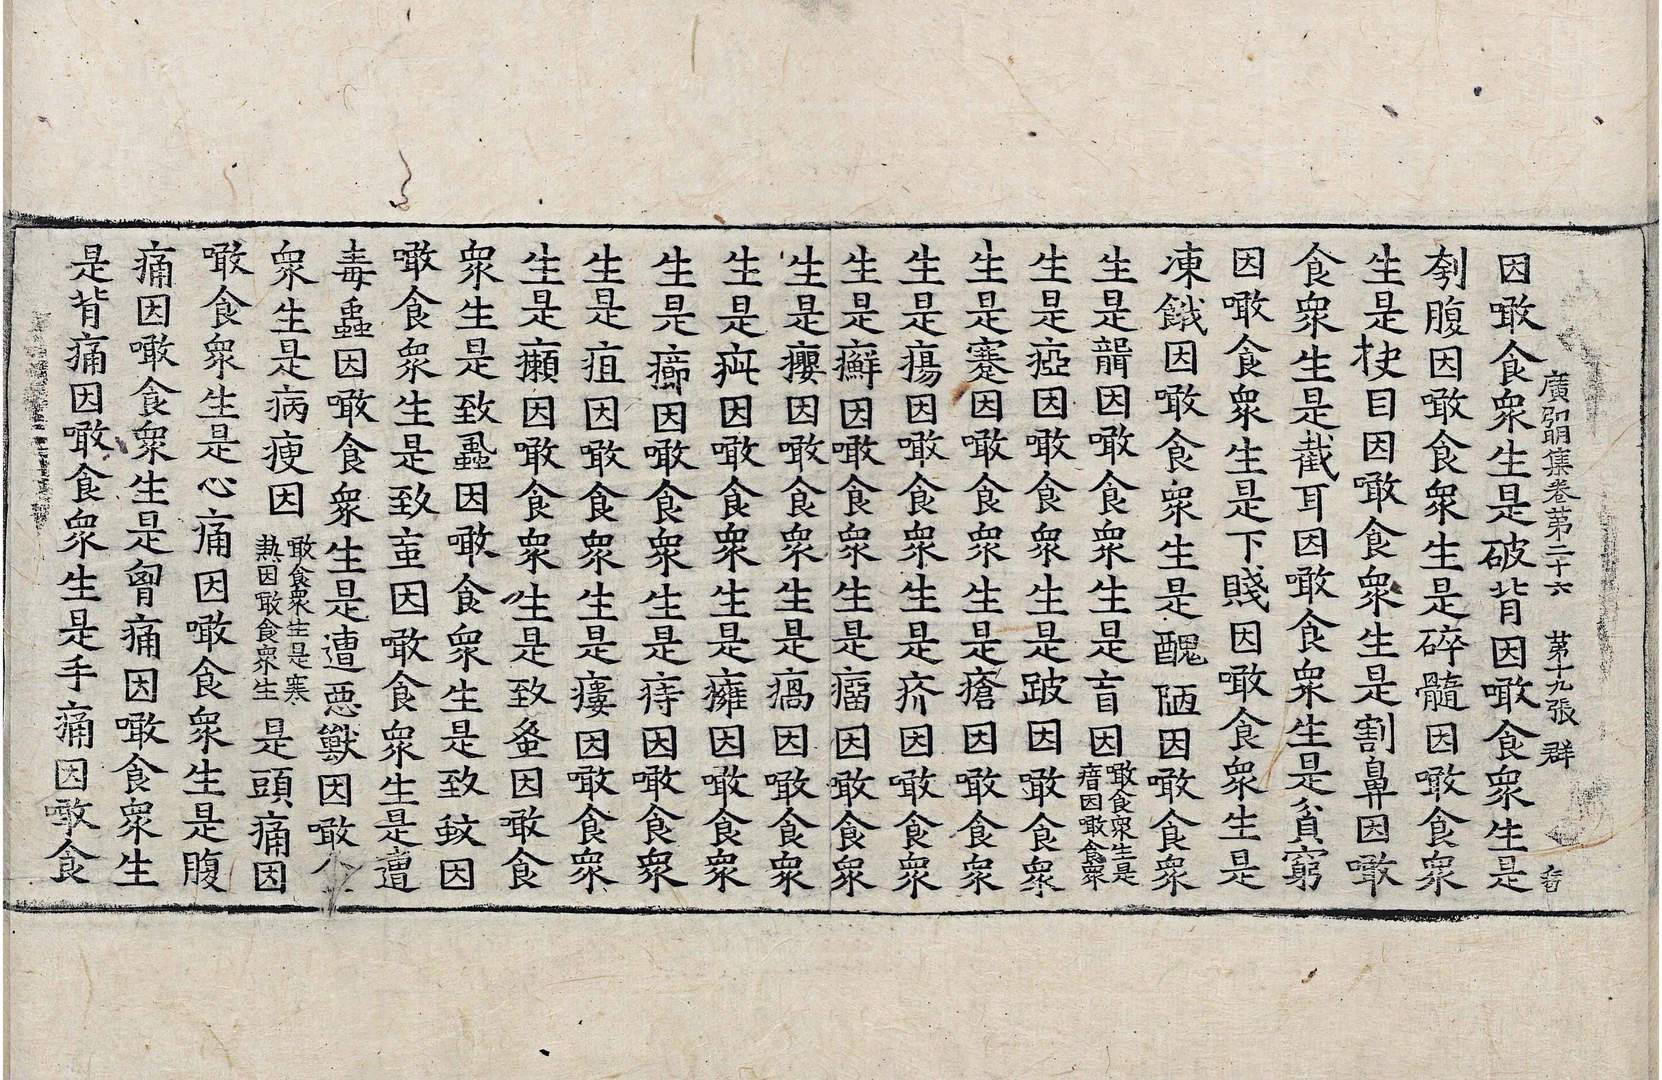 廣弘明集卷第二十六　第十九張　群
因噉食衆生是破背因噉食衆生是
刳腹因噉食衆生是碎髓因噉食衆
生是抉目因噉食衆生是割鼻因噉
食衆生是截耳因噉食衆生是貧窮
因噉食衆生是下賤因噉食衆生是
凍餓因噉食衆生是醜陋因噉食衆
生是聾因噉食衆生是盲因噉食衆生是瘖因噉食衆
生是瘂因噉食衆生是跛因噉食衆
生是蹇因噉食衆生是瘡因噉食衆
生是瘍因噉食衆生是疥因噉食衆
生是癬因噉食衆生是瘤因噉食衆
生是癭因噉食衆生是瘑因噉食衆
生是疵因噉食衆生是癰因噉食衆
生是癤因噉食衆生是痔因噉食衆
生是疽因噉食衆生是瘻因噉食衆
生是癩因噉食衆生是致蚤因噉食
衆生是致蝨因噉食衆生是致蚊因
噉食衆生是致䖟因噉食衆生是遭
毒蟲因噉食衆生是遭惡獸因噉食
衆生是病瘦因噉食衆生是寒熱因噉食衆生是頭痛因
噉食衆生是心痛因噉食衆生是腹
痛因噉食衆生是胷痛因噉食衆生
是背痛因噉食衆生是手痛因噉食